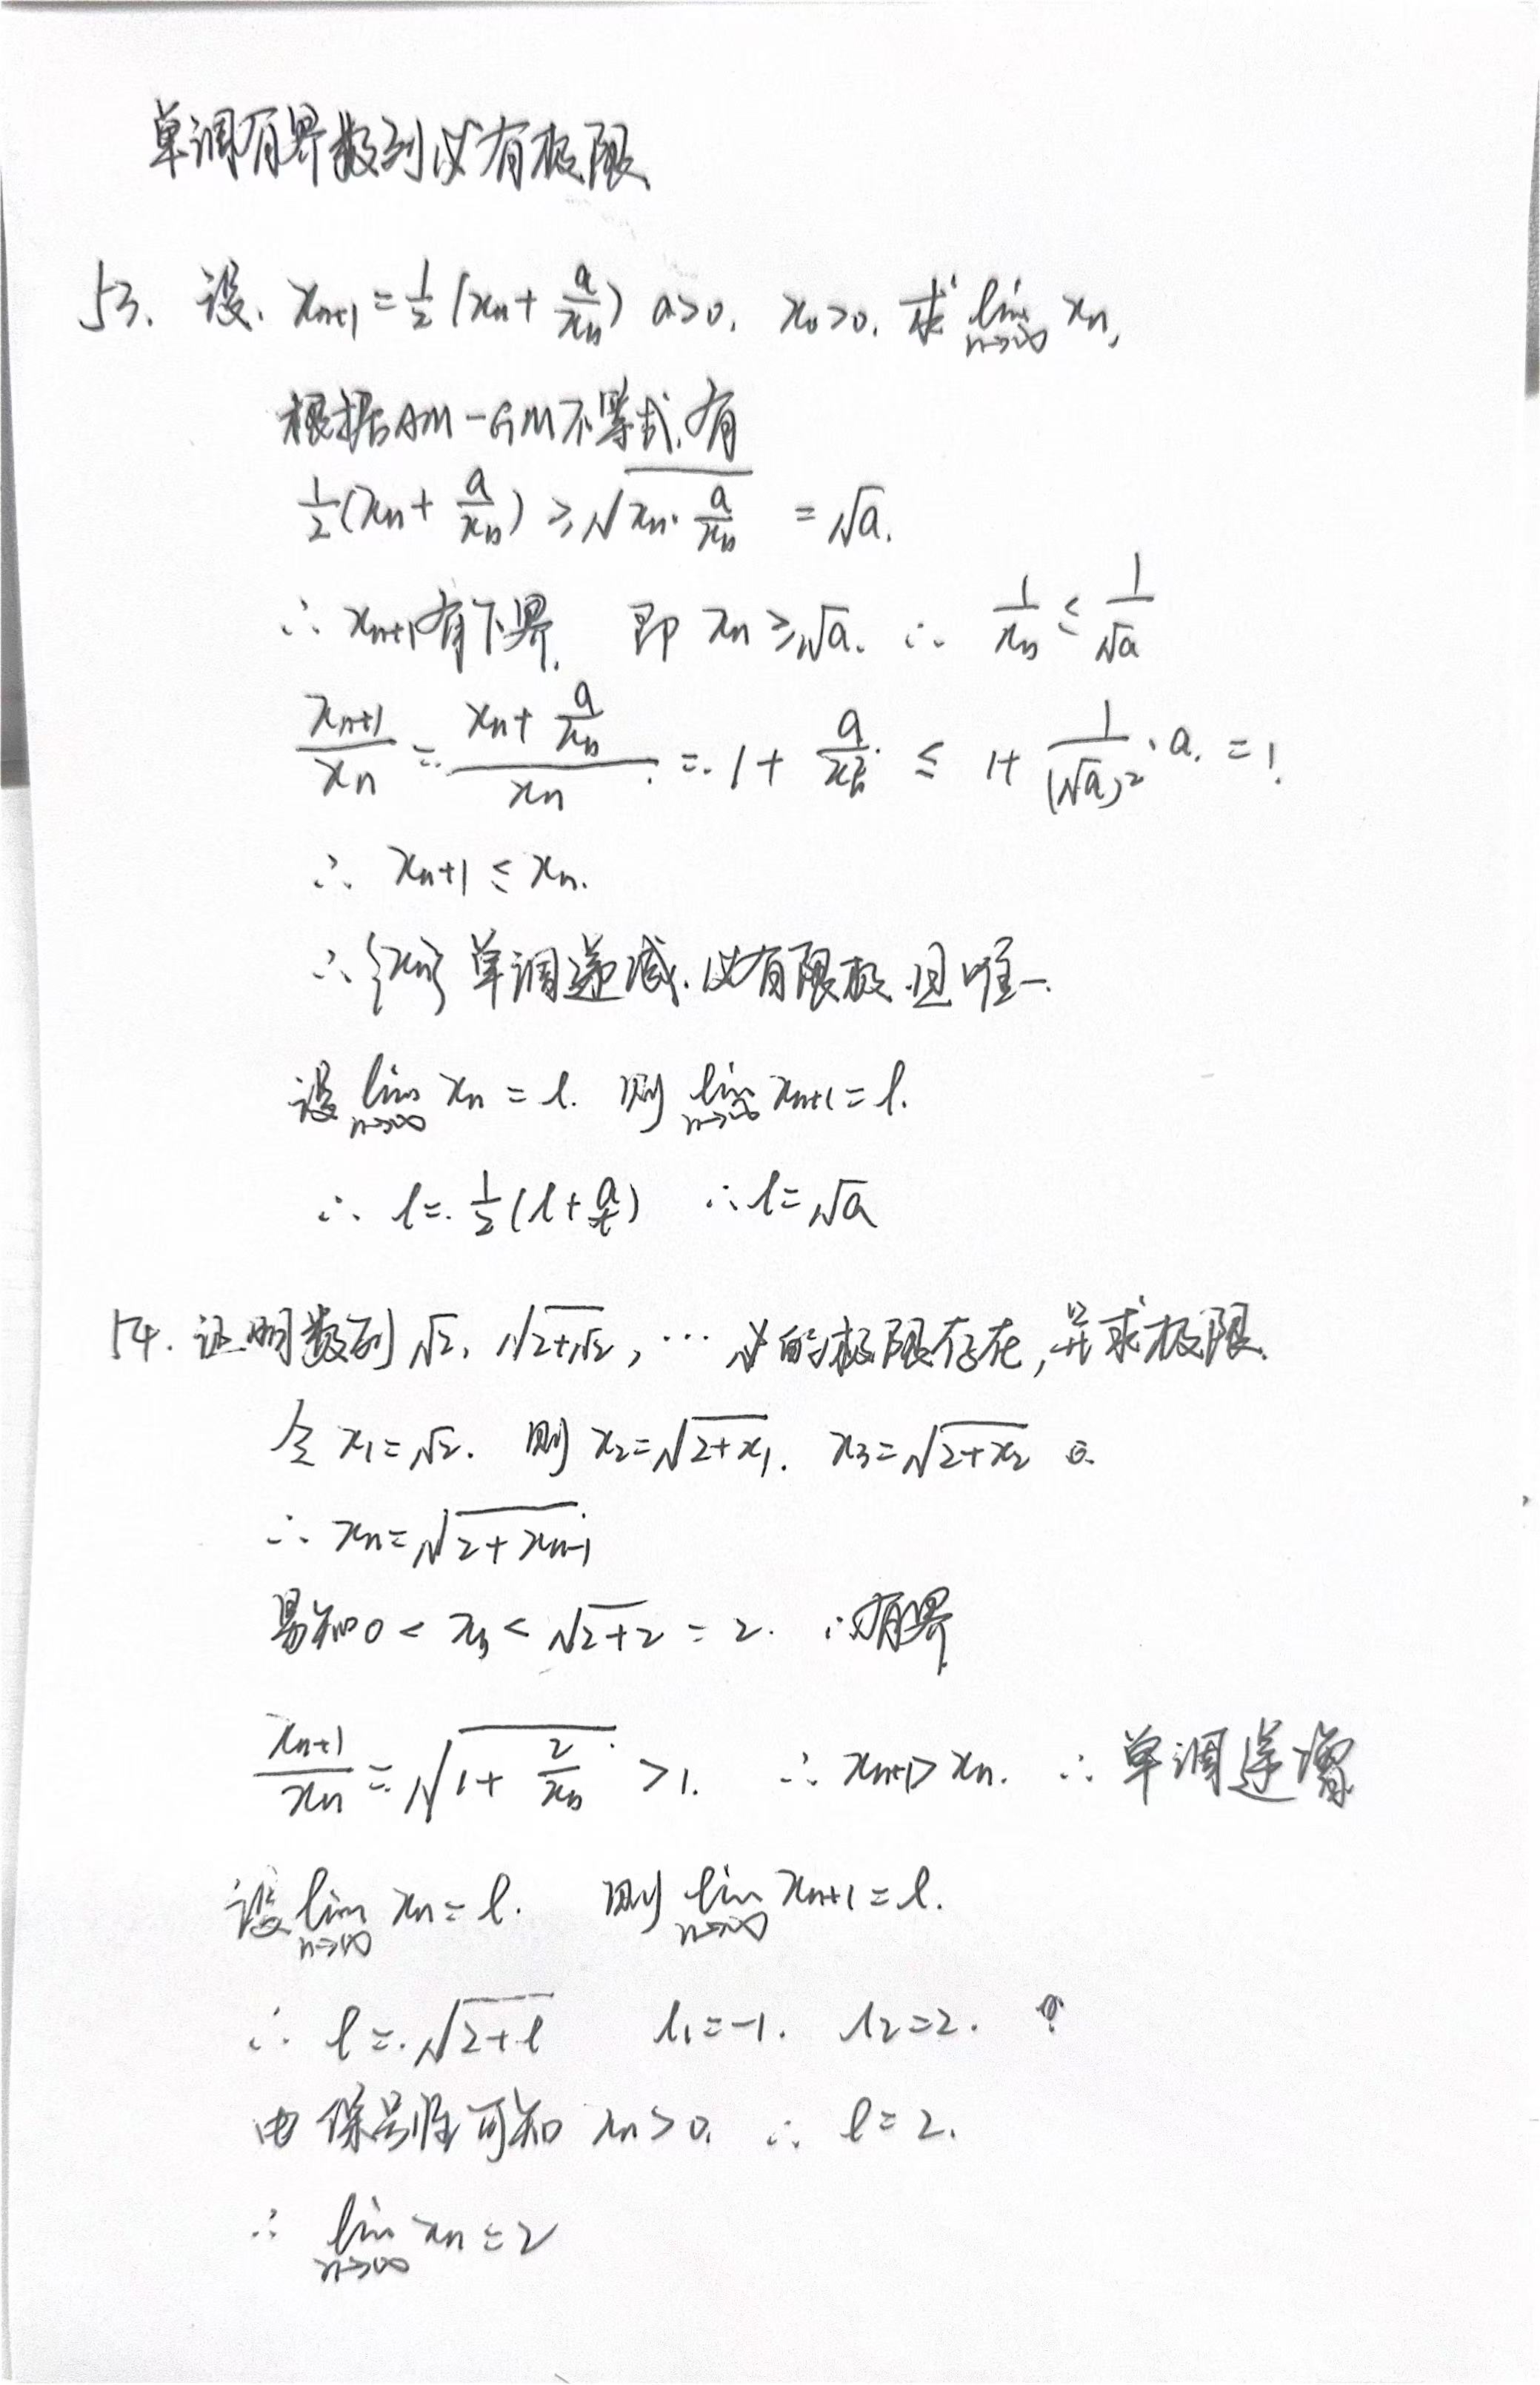 单调有界数列必有极限
53. 设. xₙ₊₁ = 1/2 (xₙ + a/xₙ) a>0. x₀>0. 求 lim n→∞ xₙ.
根据AM-GM不等式.有
1/2(xₙ + a/xₙ) ≥ √(xₙ·a/xₙ) = √a.
∴ xₙ₊₁有下界. 即 xₙ ≥ √a. ∴ 1/xₙ ≤ 1/√a
xₙ₊₁/xₙ = (xₙ + a/xₙ)/xₙ = 1 + a/xₙ² ≤ 1 + 1/(√a)²·a. = 1.
∴ xₙ₊₁ ≤ xₙ.
∴ {xₙ} 单调递减. 必有限极.且唯一.
设 lim n→∞ xₙ = l. 则 lim n→∞ xₙ₊₁ = l.
∴ l = 1/2(l + a/l) ∴ l = √a
54. 证明数列 √2, √(2+√2), … 的极限存在,并求极限.
令 x₁ = √2. 则 x₂ = √(2+x₁). x₃ = √(2+x₂)
∴ xₙ = √(2+xₙ₋₁)
易知 0 < xₙ < √(2+2) = 2. ∴有界.
xₙ₊₁/xₙ = √(1 + 2/xₙ) > 1. ∴ xₙ₊₁ > xₙ. ∴ 单调递增
设 lim n→∞ xₙ = l. 则 lim n→∞ xₙ₊₁ = l.
∴ l = √(2+l) l₁ = -1. l₂ = 2.
由保号性可知 xₙ > 0. ∴ l = 2.
∴ lim n→∞ xₙ = 2